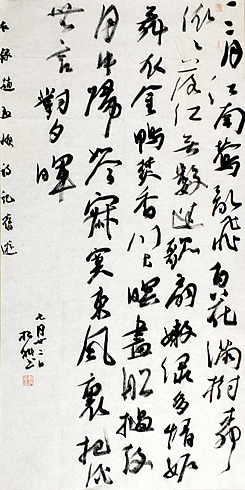 二月江南鶯亂飛百花滿樹柳
依依落紅無數迷歌扇嫩綠多情妒
舞衣金鴨焚香川上暝畫船撾鼓
月中歸如今寂寞東風裏把酒
無言對夕暉
錄趙孟頫詩紀舊遊
七月廿二日